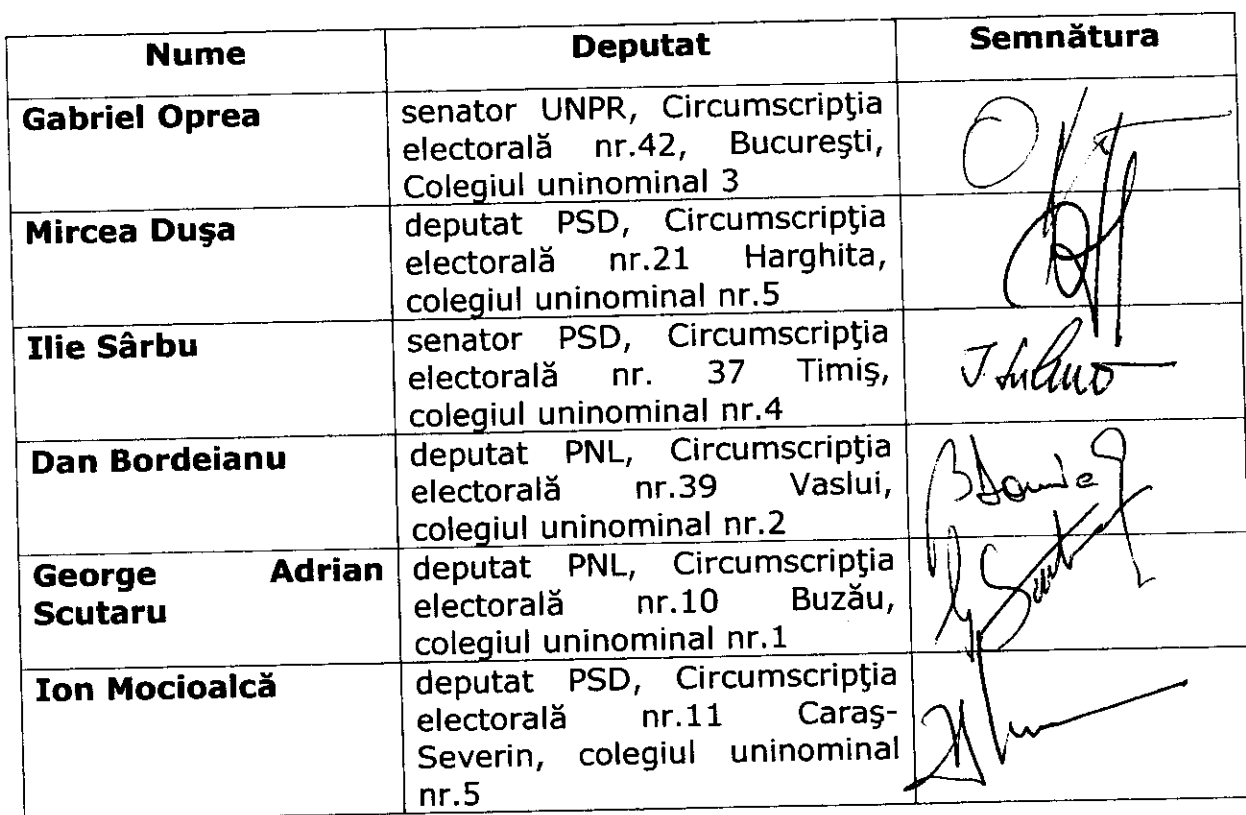 Nume Deputat Semnătura
Gabriel Oprea senator UNPR, Circumscripţia
electorală nr.42, Bucureşti,
Colegiul uninominal 3
Mircea Duşa deputat PSD, Circumscripţia
electorală nr.21 Harghita,
colegiul uninominal nr.5
Ilie Sârbu senator PSD, Circumscripţia
electorală nr. 37 Timiş,
colegiul uninominal nr.4
Dan Bordeianu deputat PNL, Circumscripţia
electorală nr.39 Vaslui,
colegiul uninominal nr.2
George Adrian deputat PNL, Circumscripţia
Scutaru electorală nr.10 Buzău,
colegiul uninominal nr.1
Ion Mocioalcă deputat PSD, Circumscripţia
electorală nr.11 Caraş-
Severin, colegiul uninominal
nr.5